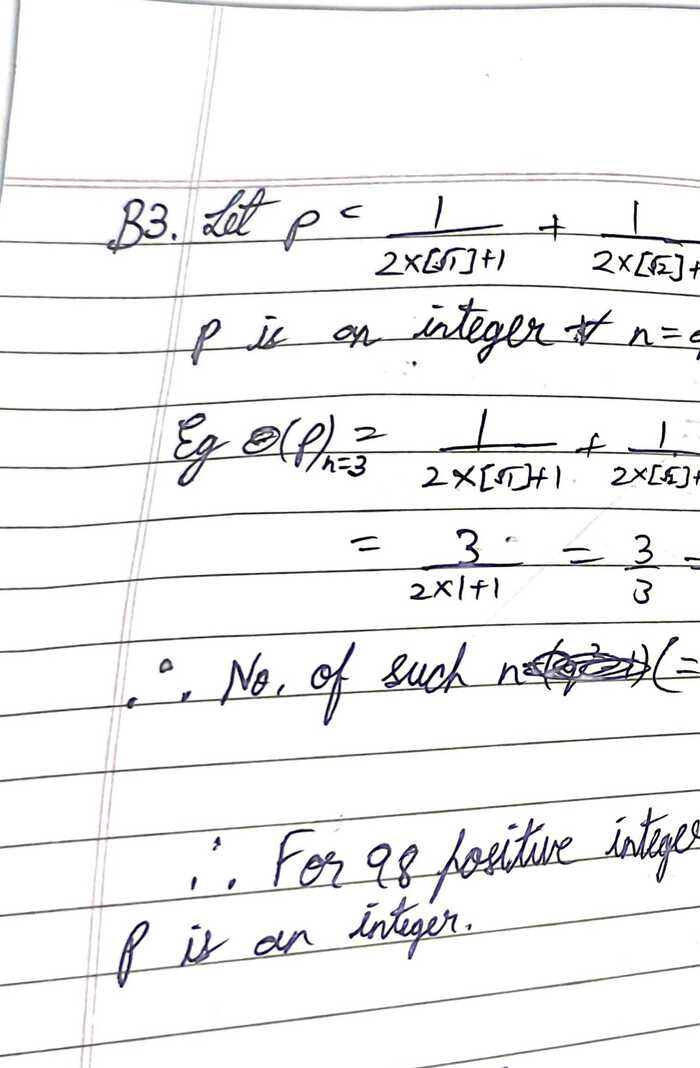 B3. Let p = 1/(2×[√1]+1) + 1/(2×[√2]+
p is an integer ∀ n=
Eg (p)n=3 = 1/(2×[√1]+1) + 1/(2×[√2]+
= 3/(2×1+1) = 3/3 =
∴ No. of such n (=
∴ For 98 positive integer
p is an integer.